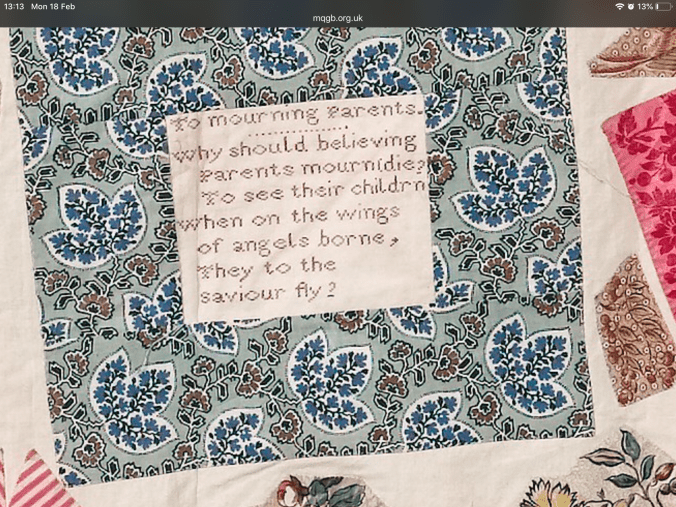 13:13 Mon 18 Feb
13%
mqgb.org.uk
To mourning Parents.
Why should believing
Parents mourn(die?
To see their childrn
When on the wings
of angels borne,
They to the
saviour fly?